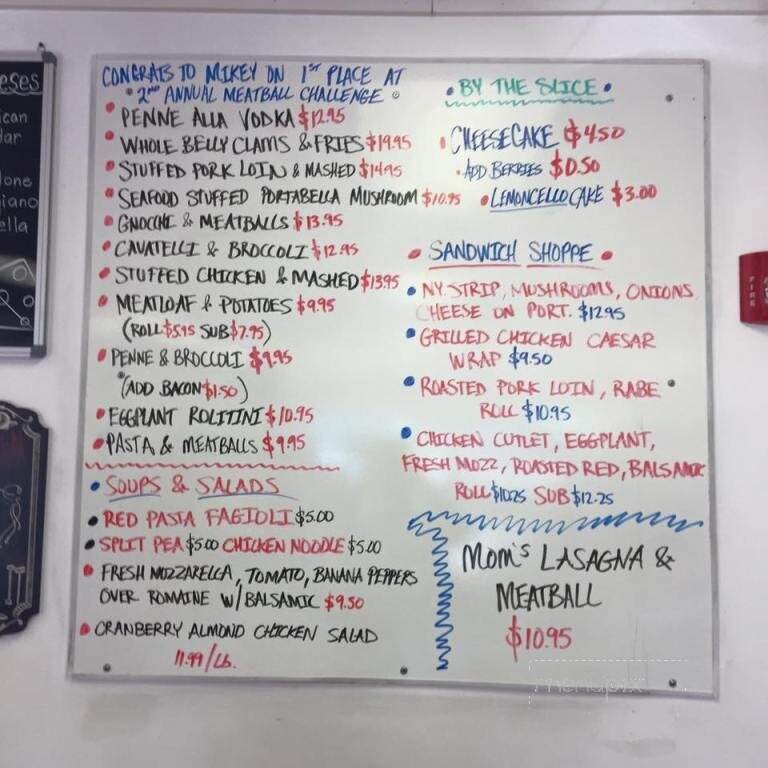 CONGRATS TO MIKEY ON 1ST PLACE AT
2ND ANNUAL MEATBALL CHALLENGE
PENNE ALLA VODKA $12.95
WHOLE BELLY CLAMS & FRIES $19.95
STUFFED PORK LOIN & MASHED $14.95
SEAFOOD STUFFED PORTABELLA MUSHROOM $10.95
GNOCCHI & MEATBALLS $13.95
CAVATELLI & BROCCOLI $12.95
STUFFED CHICKEN & MASHED $13.95
MEATLOAF & POTATOES $9.95
(ROLL $5.95 SUB $7.95)
PENNE & BROCCOLI $9.95
(ADD BACON $1.50)
EGGPLANT ROLITINI $10.95
PASTA & MEATBALLS $9.95
SOUPS & SALADS
RED PASTA FAGIOLI $5.00
SPLIT PEA $5.00 CHICKEN NOODLE $5.00
FRESH MOZZARELLA, TOMATO, BANANA PEPPERS
OVER ROMAINE W/ BALSAMIC $9.50
CRANBERRY ALMOND CHICKEN SALAD
11.99/Lb.
BY THE SLICE
CHEESECAKE $4.50
ADD BERRIES $0.50
LEMONCELLO CAKE $3.00
SANDWICH SHOPPE
NY STRIP, MUSHROOMS, ONIONS
CHEESE ON PORT. $12.95
GRILLED CHICKEN CAESAR
WRAP $9.50
ROASTED PORK LOIN, RABE
ROLL $10.95
CHICKEN CUTLET, EGGPLANT,
FRESH MOZZ, ROASTED RED, BALSAMIC
ROLL $10.25 SUB $12.25
MOM'S LASAGNA &
MEATBALL
$10.95
eses
ican
dar
lone
giano
ella
FIRE
menupix